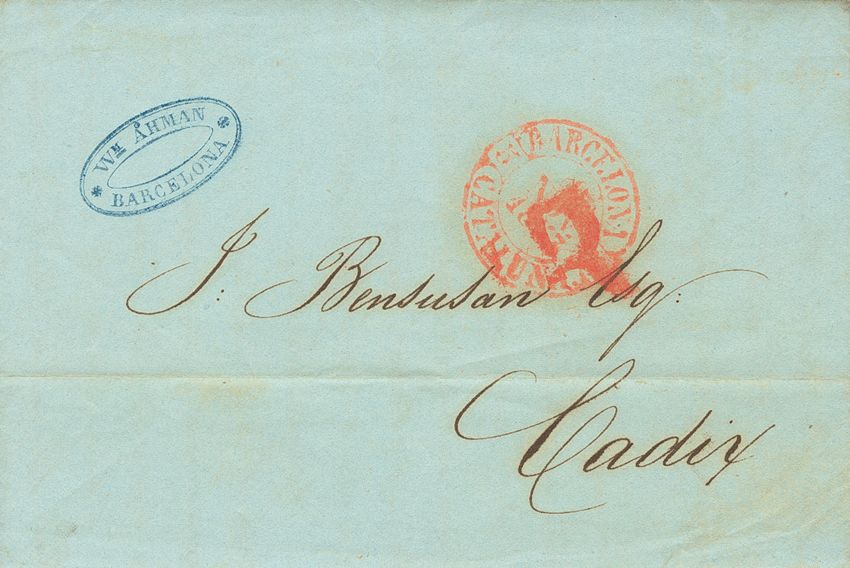 Wᴍ ÅHMAN
BARCELONA
BARCELONA
CATALUÑA
J. Bensusan Esq.
Cadix